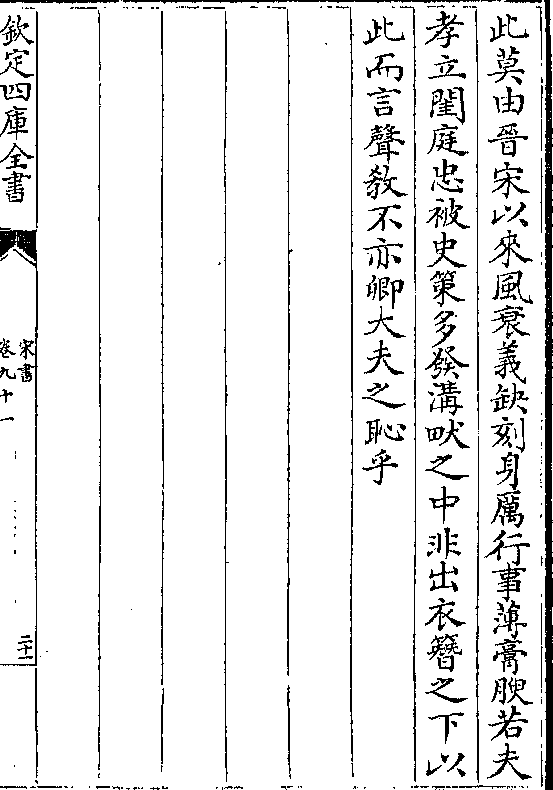 此莫由晉宋以來風衰義缺刻身厲行事薄膏腴若夫
孝立閨庭忠被史策多發溝畎之中非出衣簪之下以
此而言聲教不亦卿大夫之恥乎
欽定四庫全書
宋書
卷九十一
二十一